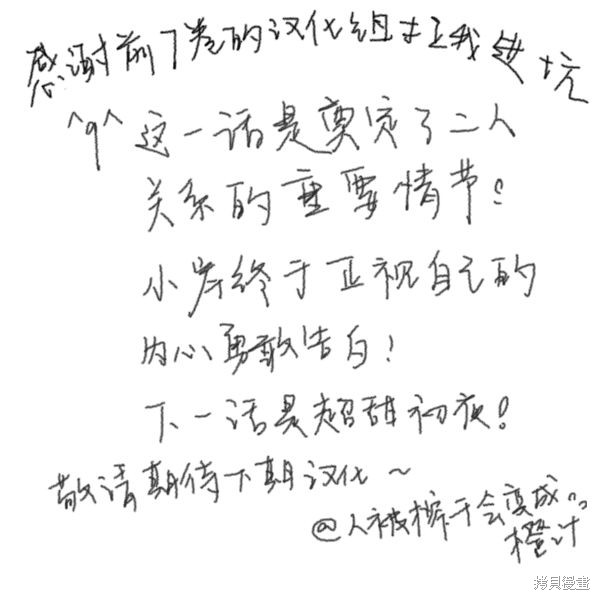 感谢前7卷的汉化组拉我进坑
^q^ 这一话是奠定了二人
关系的重要情节!
小岸终于正视自己的
内心勇敢告白!
下一话是超甜初夜!
敬请期待下期汉化~
@人被榨干会变成..
橙汁
拷貝漫畫